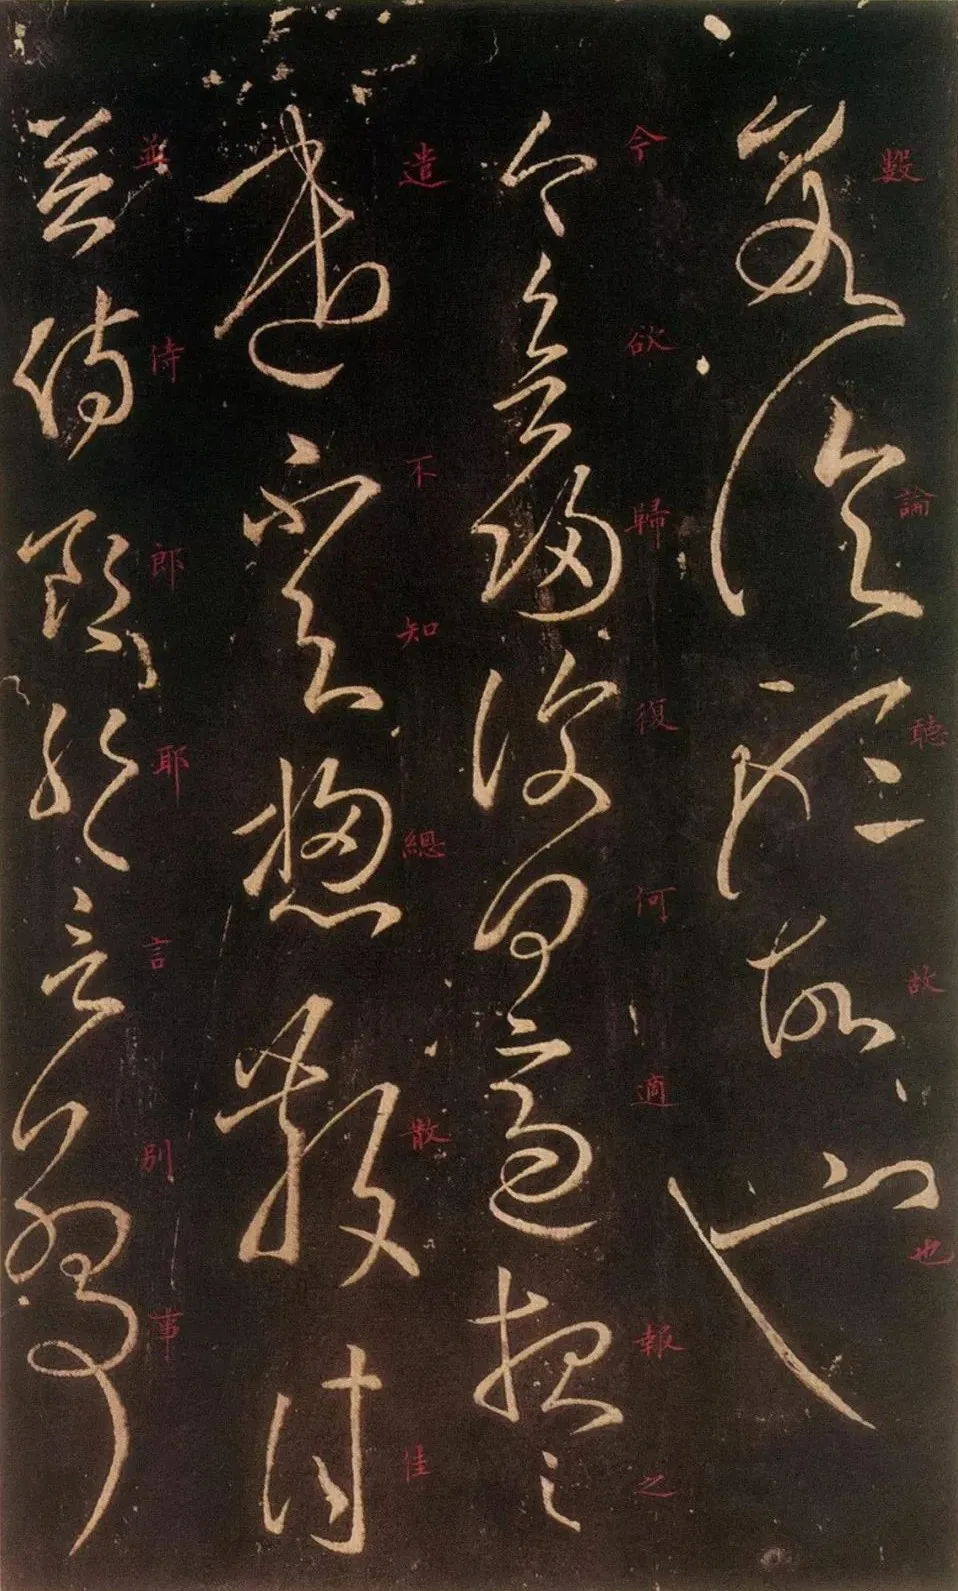 數論聽故也
今欲歸復何適報之
遣不知總散佳
並侍郎耶言別事